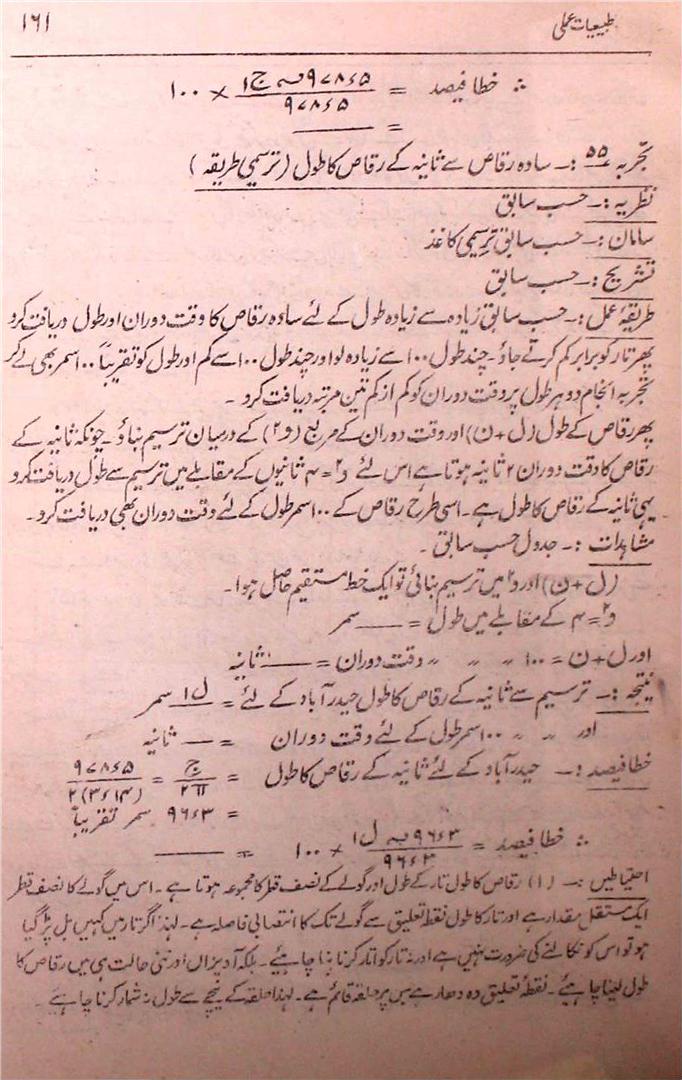 طبیعیات عملی ۱۶۱
∴ خطا فیصد = (۹۷۸ء۵ ~ ج۱)/(۹۷۸ء۵) × ۱۰۰
= ــــــــ
تجربہ ۵۵ :۔ سادہ رقاص سے ثانیہ کے رقاص کا طول (ترسیمی طریقہ)
نظریہ :۔ حسب سابق
سامان :۔ حسب سابق ترسیمی کاغذ
تشریح :۔ حسب سابق
طریقۂ عمل :۔ حسب سابق زیادہ سے زیادہ طول کے لئے سادہ رقاص کا وقت دوران اور طول دریافت کرو
پھر تار کو برابر کم کرتے جاؤ۔ چند طول ۱۰۰ سے زیادہ لو اور چند طول ۱۰۰ سے کم اور طول کو تقریباً ۱۰۰ سمر بھی لے کر
تجربہ انجام دو ہر طول پر وقت دوران کو کم از کم تین مرتبہ دریافت کرو ۔
پھر رقاص کے طول (ل + ن) اور وقت دوران کے مربع (و۲) کے درمیان ترسیم بناؤ۔ چونکہ ثانیہ کے
رقاص کا وقت دوران ۲ ثانیہ ہوتا ہے اس لئے و۲ = ۴ ثانیوں کے مقابلے میں ترسیم سے طول دریافت کرو
یہی ثانیہ کے رقاص کا طول ہے۔ اسی طرح رقاص کے ۱۰۰ سمر طول کے لئے وقت دوران بھی دریافت کرو۔
مشاہدات :۔ جدول حسب سابق ۔
(ل + ن) اور و۲ میں ترسیم بنائی تو ایک خط مستقیم حاصل ہوا۔
و۲ = ۴ کے مقابلے میں طول = ــــــ سمر
اور ل + ن = ۱۰۰ 〃 〃 〃 وقت دوران = ــــــ ثانیہ
نتیجہ :۔ ترسیم سے ثانیہ کے رقاص کا طول حیدرآباد کے لئے = ل۱ سمر
اور 〃 〃 ۱۰۰ سمر طول کے لئے وقت دوران = ــــ ثانیہ
خطا فیصد :۔ حیدرآباد کے لئے ثانیہ کے رقاص کا طول = ج/π۲ = ۹۷۸ء۵/(۳ء۱۴)۲
= ۹۶ء۳ سمر تقریباً
∴ خطا فیصد = (۹۶ء۳ ~ ل۱)/(۹۶ء۳) × ۱۰۰ = ــــــــ
احتیاطیں :۔ (۱) رقاص کا طول تار کے طول اور گولے کے نصف قطر کا مجموعہ ہوتا ہے۔ اس میں گولے کا نصف قطر
ایک مستقل مقدار ہے اور تار کا طول نقطۂ تعلیق سے گولے تک کا انتصابی فاصلہ ہے۔ لہٰذا اگر تار میں کہیں بل پڑ گیا
ہو تو اس کو نکالنے کی ضرورت نہیں ہے اور نہ تار کو اتار کرناپنا چاہیئے۔ بلکہ آویزاں اور تنی حالت ہی میں رقاص کا
طول لینا چاہیئے۔ نقطۂ تعلیق وہ دھار ہے جس پر حلقہ قائم ہے۔ لہٰذا حلقہ کے نیچے سے طول نہ شمار کرنا چاہیئے ۔